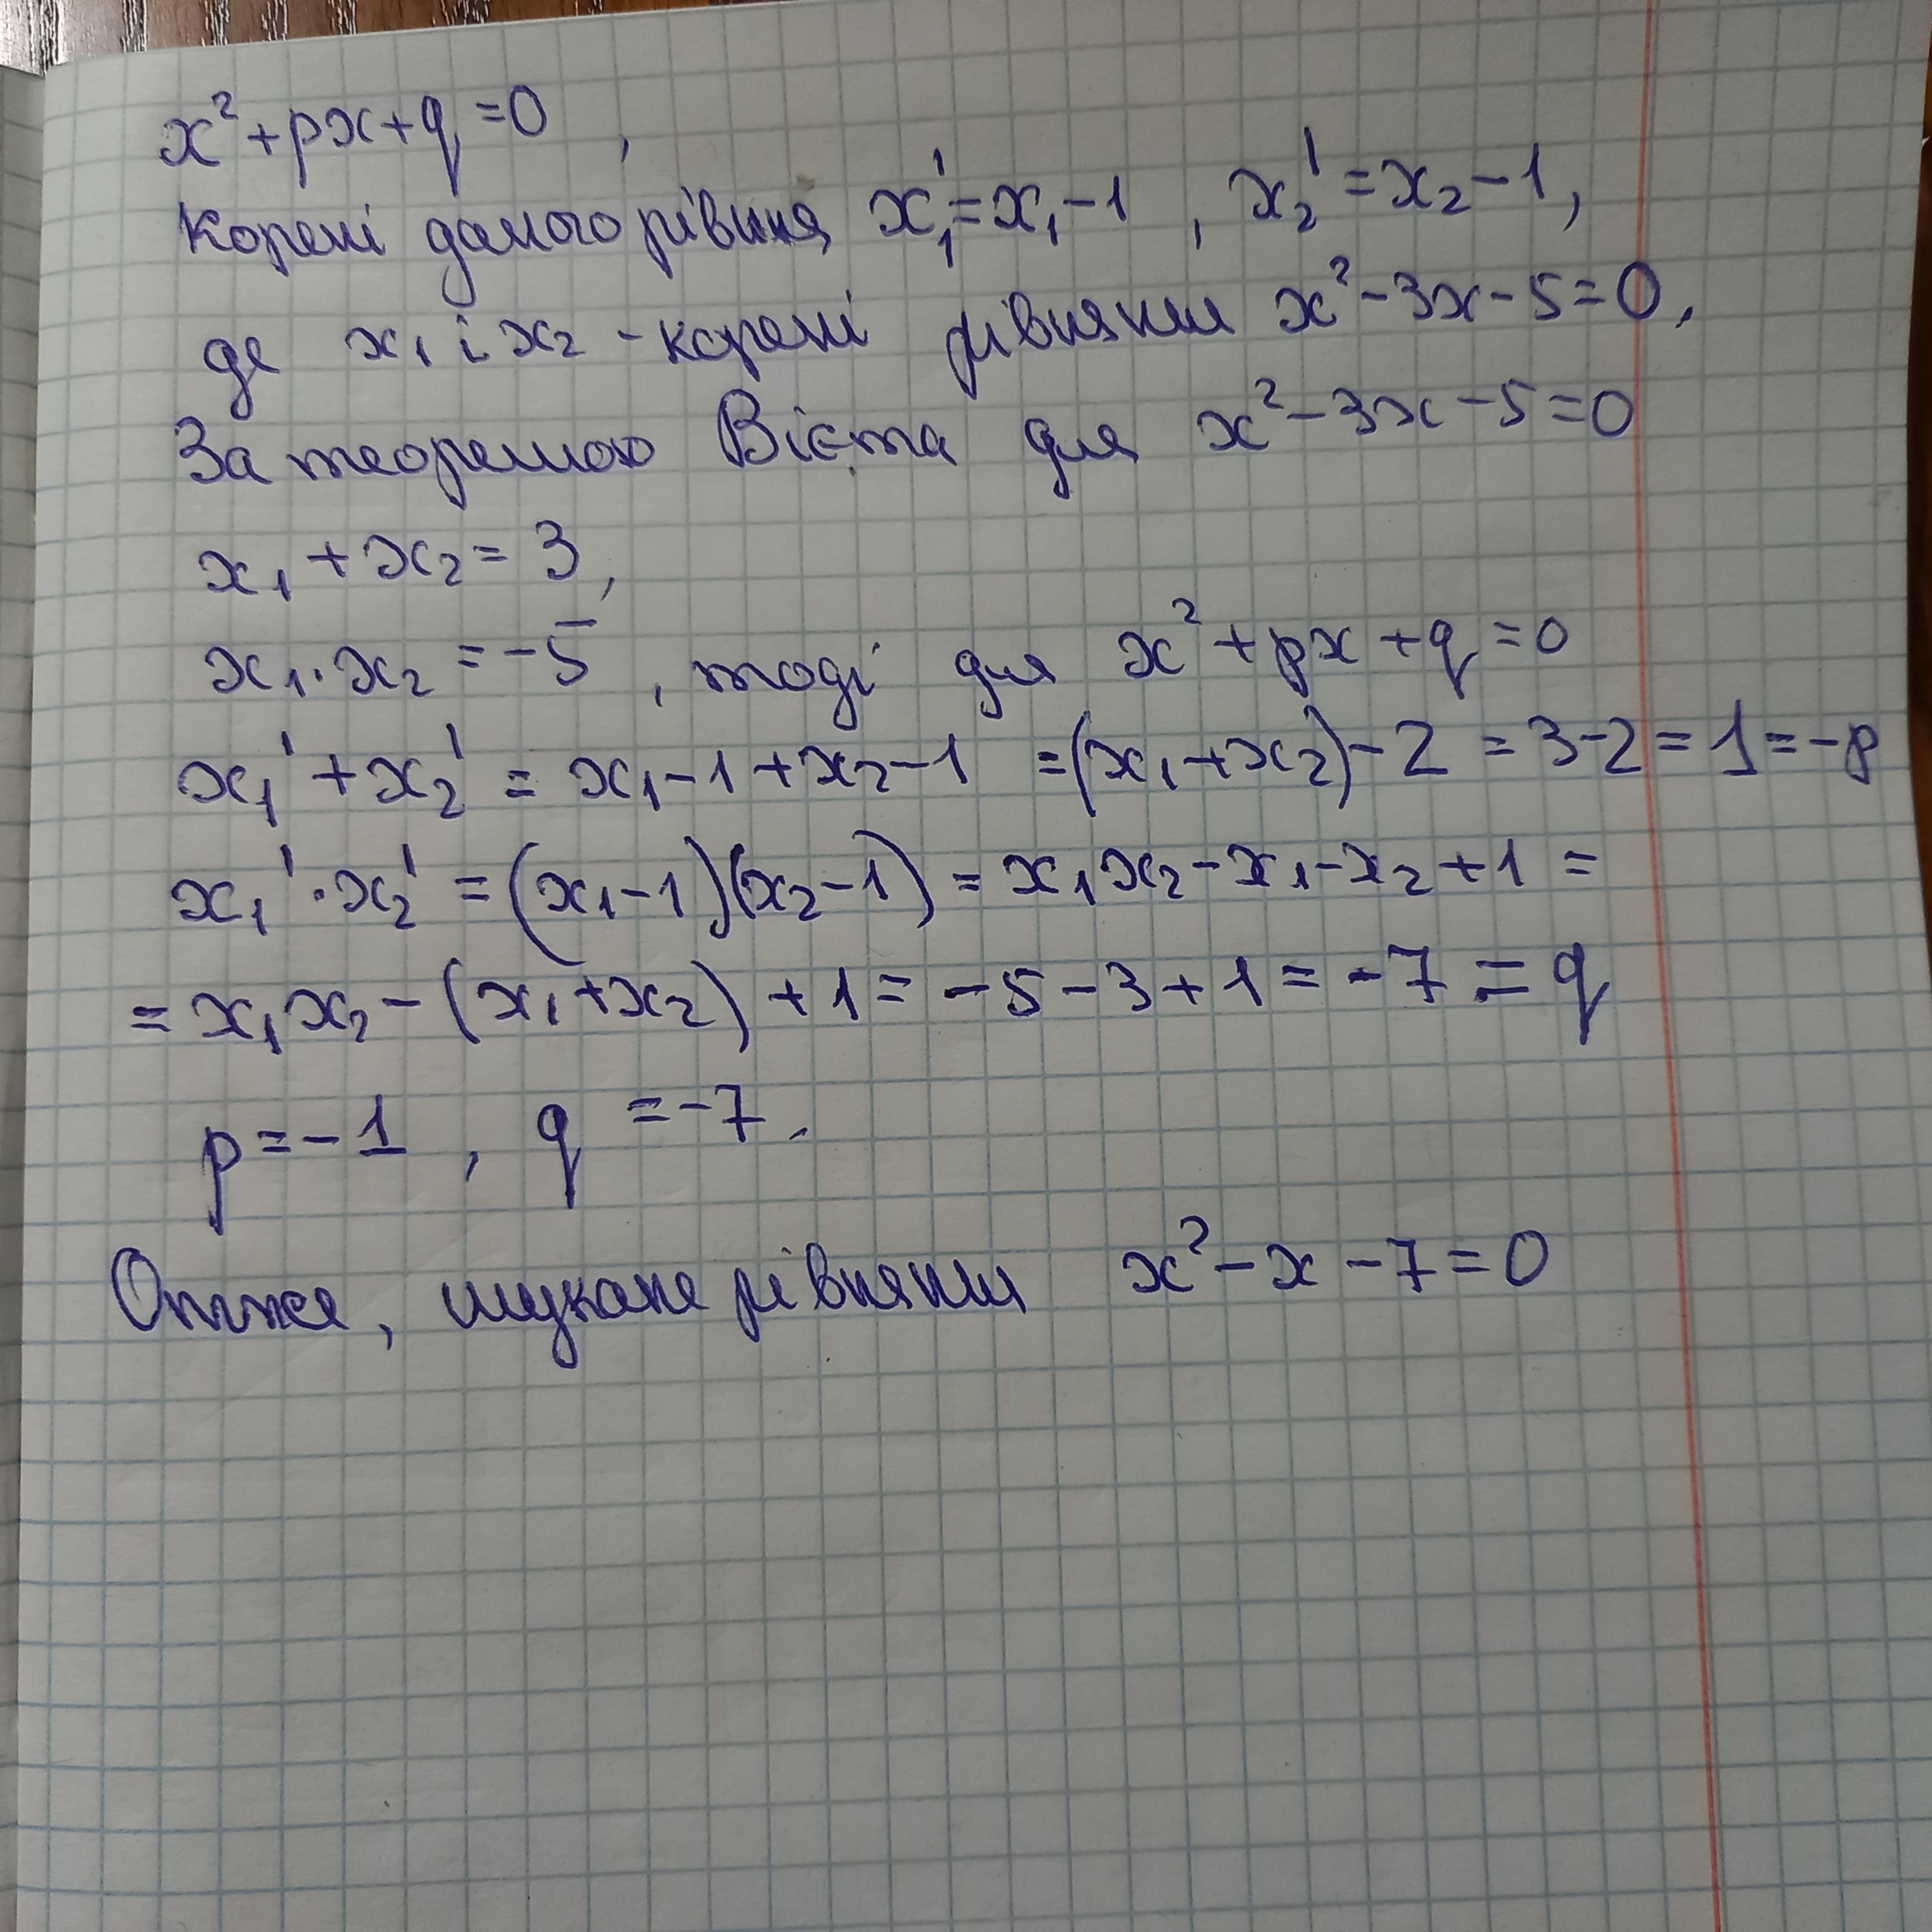 x² + px + q = 0 ,
Корені даного рівння x₁' = x₁ - 1 , x₂' = x₂ - 1,
де x₁ і x₂ - корені рівняння x² - 3x - 5 = 0,
За теоремою Вієта для x² - 3x - 5 = 0
x₁ + x₂ = 3,
x₁ · x₂ = -5 , тоді для x² + px + q = 0
x₁' + x₂' = x₁ - 1 + x₂ - 1 = (x₁ + x₂) - 2 = 3 - 2 = 1 = -p
x₁' · x₂' = (x₁ - 1)(x₂ - 1) = x₁x₂ - x₁ - x₂ + 1 =
= x₁x₂ - (x₁ + x₂) + 1 = -5 - 3 + 1 = -7 = q
p = -1 , q = -7.
Отже, шукане рівняння x² - x - 7 = 0